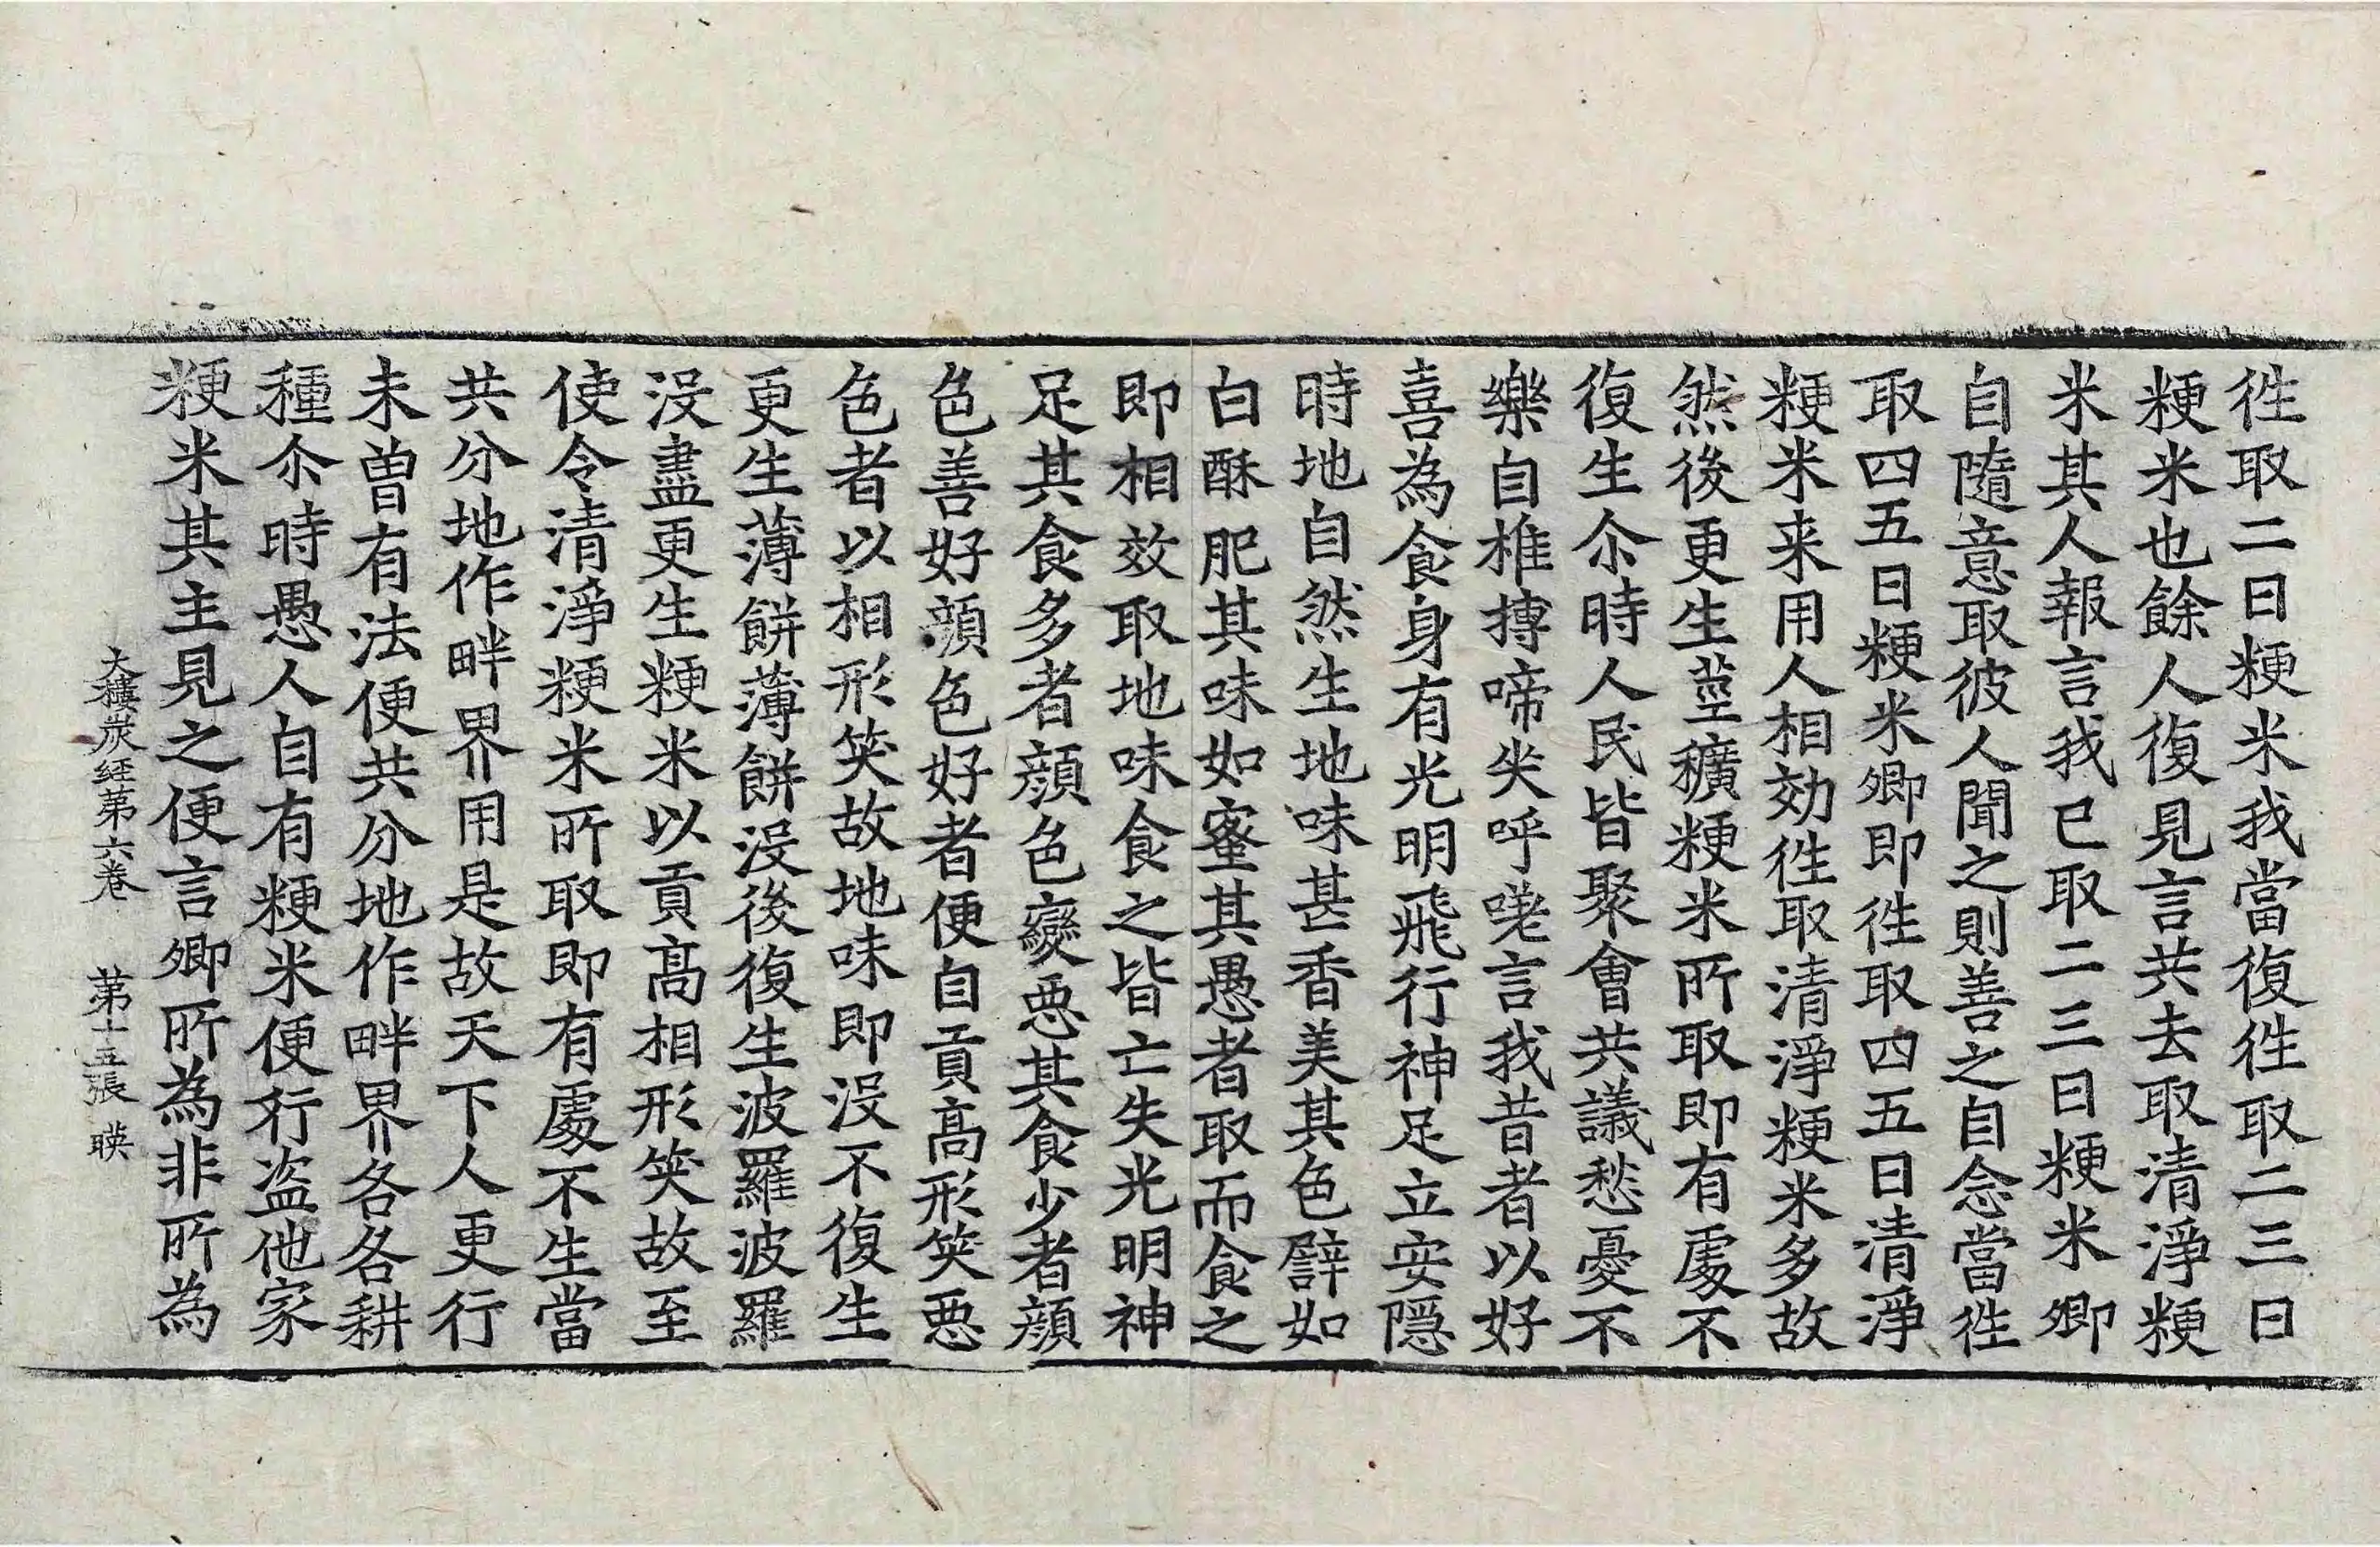 徃取二日粳米我當復徃取二三日
粳米也餘人復見言共去取清淨粳
米其人報言我已取二三日粳米卿
自隨意取彼人聞之則善之自念當徃
取四五日粳米卿即徃取四五日清淨
粳米来用人相効徃取清淨粳米多故
然後更生莖穬粳米所取即有處不
復生尒時人民皆聚會共議愁憂不
樂自椎摶啼哭呼嗟言我昔者以好
喜為食身有光明飛行神足立安隠
時地自然生地味甚香美其色譬如
白酥肥其味如蜜其愚者取而食之
即相效取地味食之皆亡失光明神
足其食多者顔色變惡其食少者顔
色善好顔色好者便自貢高形笑惡
色者以相形笑故地味即没不復生
更生薄餅薄餅没後復生波羅波羅
没盡更生粳米以貢高相形笑故至
使令清淨粳米所取即有處不生當
共分地作畔界用是故天下人更行
未曽有法便共分地作畔界各各耕
種尒時愚人自有粳米便行盗他家
粳米其主見之便言卿所為非所為
大樓炭経苐六巻　苐十五張　暎